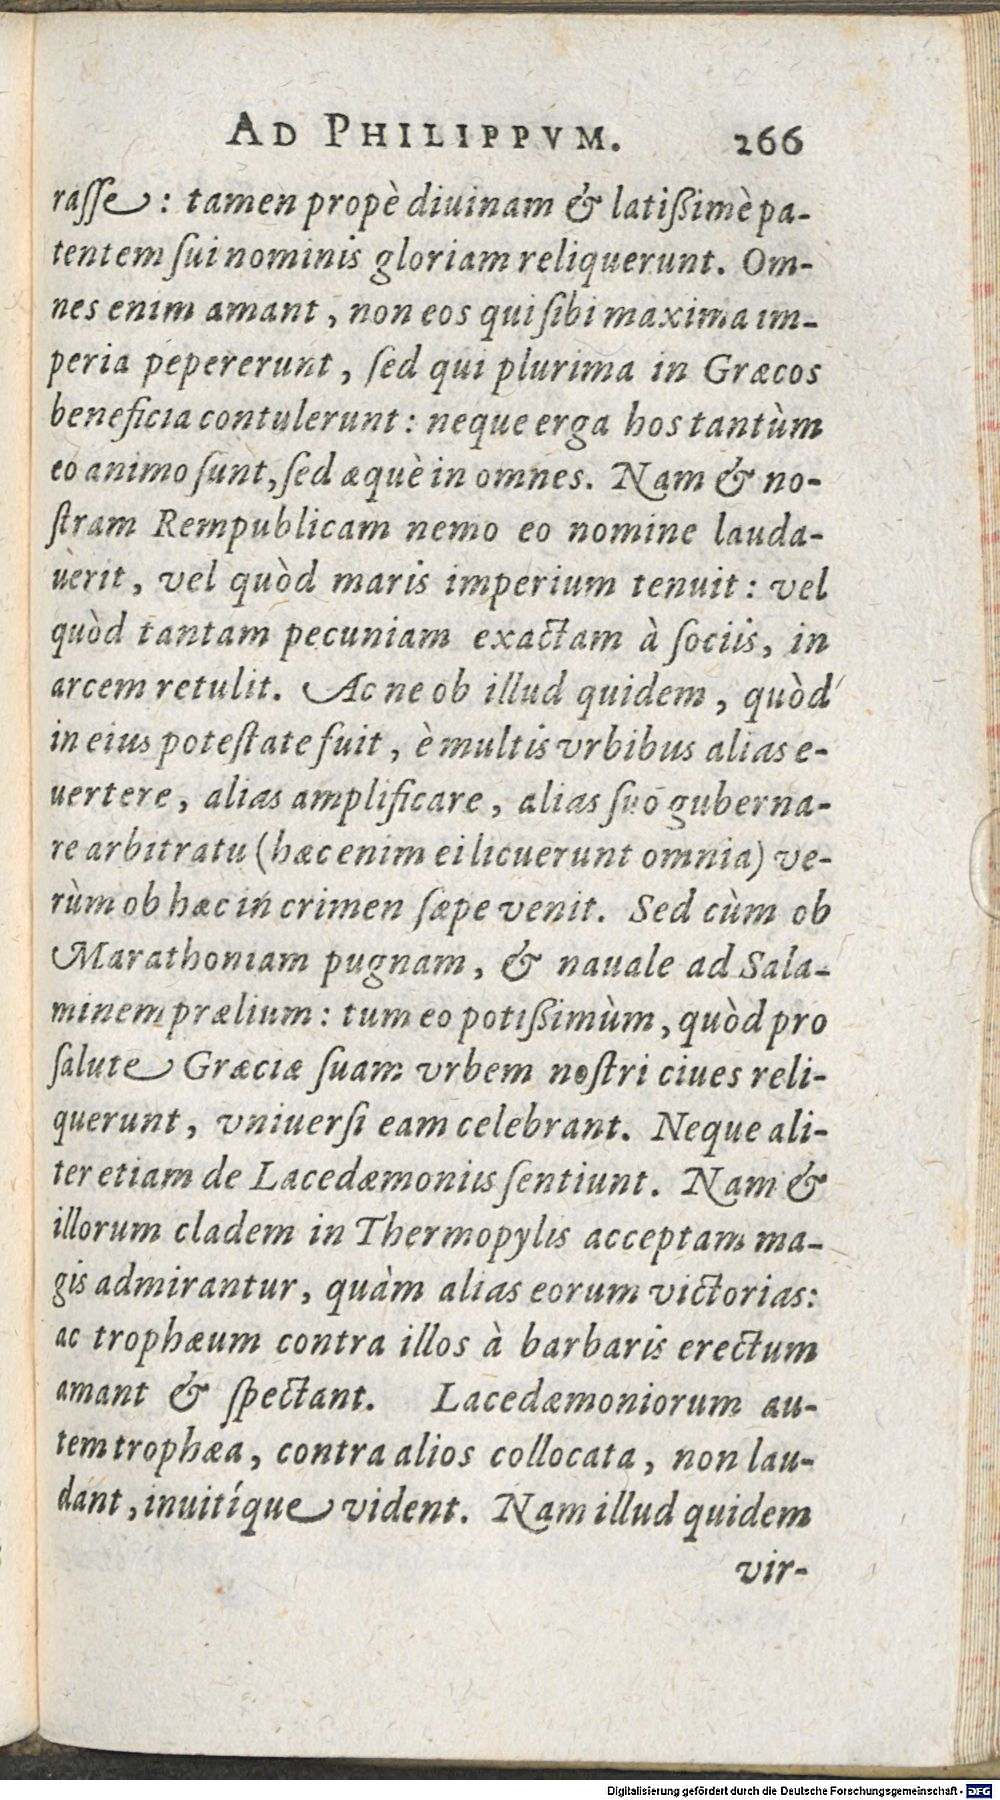 AD PHILIPPVM. 266
raſſe: tamen propè diuinam & latißimè pa-
tentem ſui nominis gloriam reliquerunt. Om-
nes enim amant, non eos qui ſibi maxima im-
peria pepererunt, ſed qui plurima in Græcos
beneficia contulerunt: neque erga hos tantùm
eo animo ſunt, ſed æquè in omnes. Nam & no-
ſtram Rempublicam nemo eo nomine lauda-
uerit, vel quòd maris imperium tenuit: vel
quòd tantam pecuniam exactam à ſociis, in
arcem retulit. Ac ne ob illud quidem, quòd
in eius poteſtate fuit, è multis vrbibus alias e-
uertere, alias amplificare, alias ſuo guberna-
re arbitratu (hæc enim ei licuerunt omnia) ve-
rùm ob hæc in crimen ſæpe venit. Sed cùm ob
Marathoniam pugnam, & nauale ad Sala-
minem prælium: tum eo potißimùm, quòd pro
ſalute Græciæ ſuam vrbem noſtri ciues reli-
querunt, vniuerſi eam celebrant. Neque ali-
ter etiam de Lacedæmoniis ſentiunt. Nam &
illorum cladem in Thermopylis acceptam ma-
gis admirantur, quàm alias eorum victorias:
ac trophæum contra illos à barbaris erectum
amant & ſpectant. Lacedæmoniorum au-
tem trophæa, contra alios collocata, non lau-
dant, inuitíque vident. Nam illud quidem
vir-
Digitalisierung gefördert durch die Deutsche Forschungsgemeinschaft - DFG